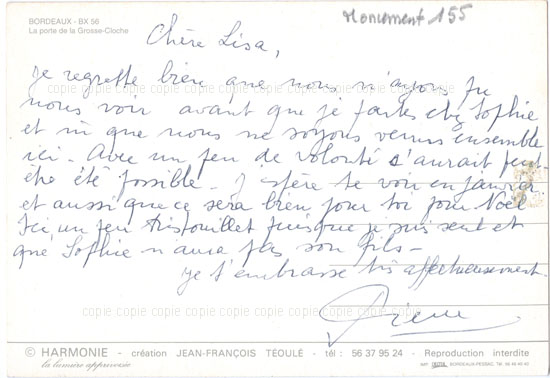 BORDEAUX - BX 56
La porte de la Grosse-Cloche
Monument 155
Chère Lisa,
Je regrette bien que nous n'ayons pu
nous voir avant que je partes chez Sophie
et ni que nous ne soyons venus ensemble
ici. Avec un peu de volonté s'aurait peut-
être été possible. J'espère te voir en janvier
et aussi que ce sera bien pour toi pour Noël
Ici un peu tristouillet puisque je suis seul et
que Sophie n'aura pas son fils -
Je t'embrasse très affectueusement.
Pierre
copie copie copie copie copie copie copie copie copie copie
© HARMONIE - création JEAN-FRANÇOIS TÉOULÉ - tél : 56 37 95 24 - Reproduction interdite
la lumière apprivoisée
BORDEAUX-PESSAC